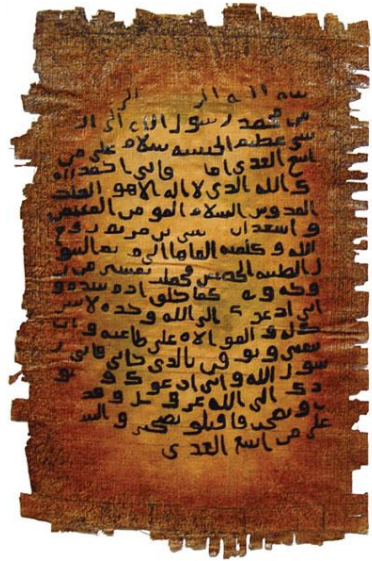 الله الر الر
من محمد رسول الله الى ال
شى عظيم الحبشه سلام على من
اتبع الهدى اما فانى احمد ال
ك الله الذى لا اله الا هو الملك
القدوس السلام المومن المهيمن
و اشهد ان عيسى بن مريم روح
الله و كلمته القاها الى مريم البتو
ل الطيبه الحصينه فحملت بعيسى من ر
وحه و كما خلق ادم بيده و
انى ادعوك الى الله وحده لا شر
يك له و الموالاه على طاعته و ان
تتبعنى و توقن بالذى جانى فانى ر
سول الله و انى ادعوك و جنو
دك الى الله عز و جل و قد
و نصحت فاقبلو نصيحتى و السلم
على من اتبع الهدى